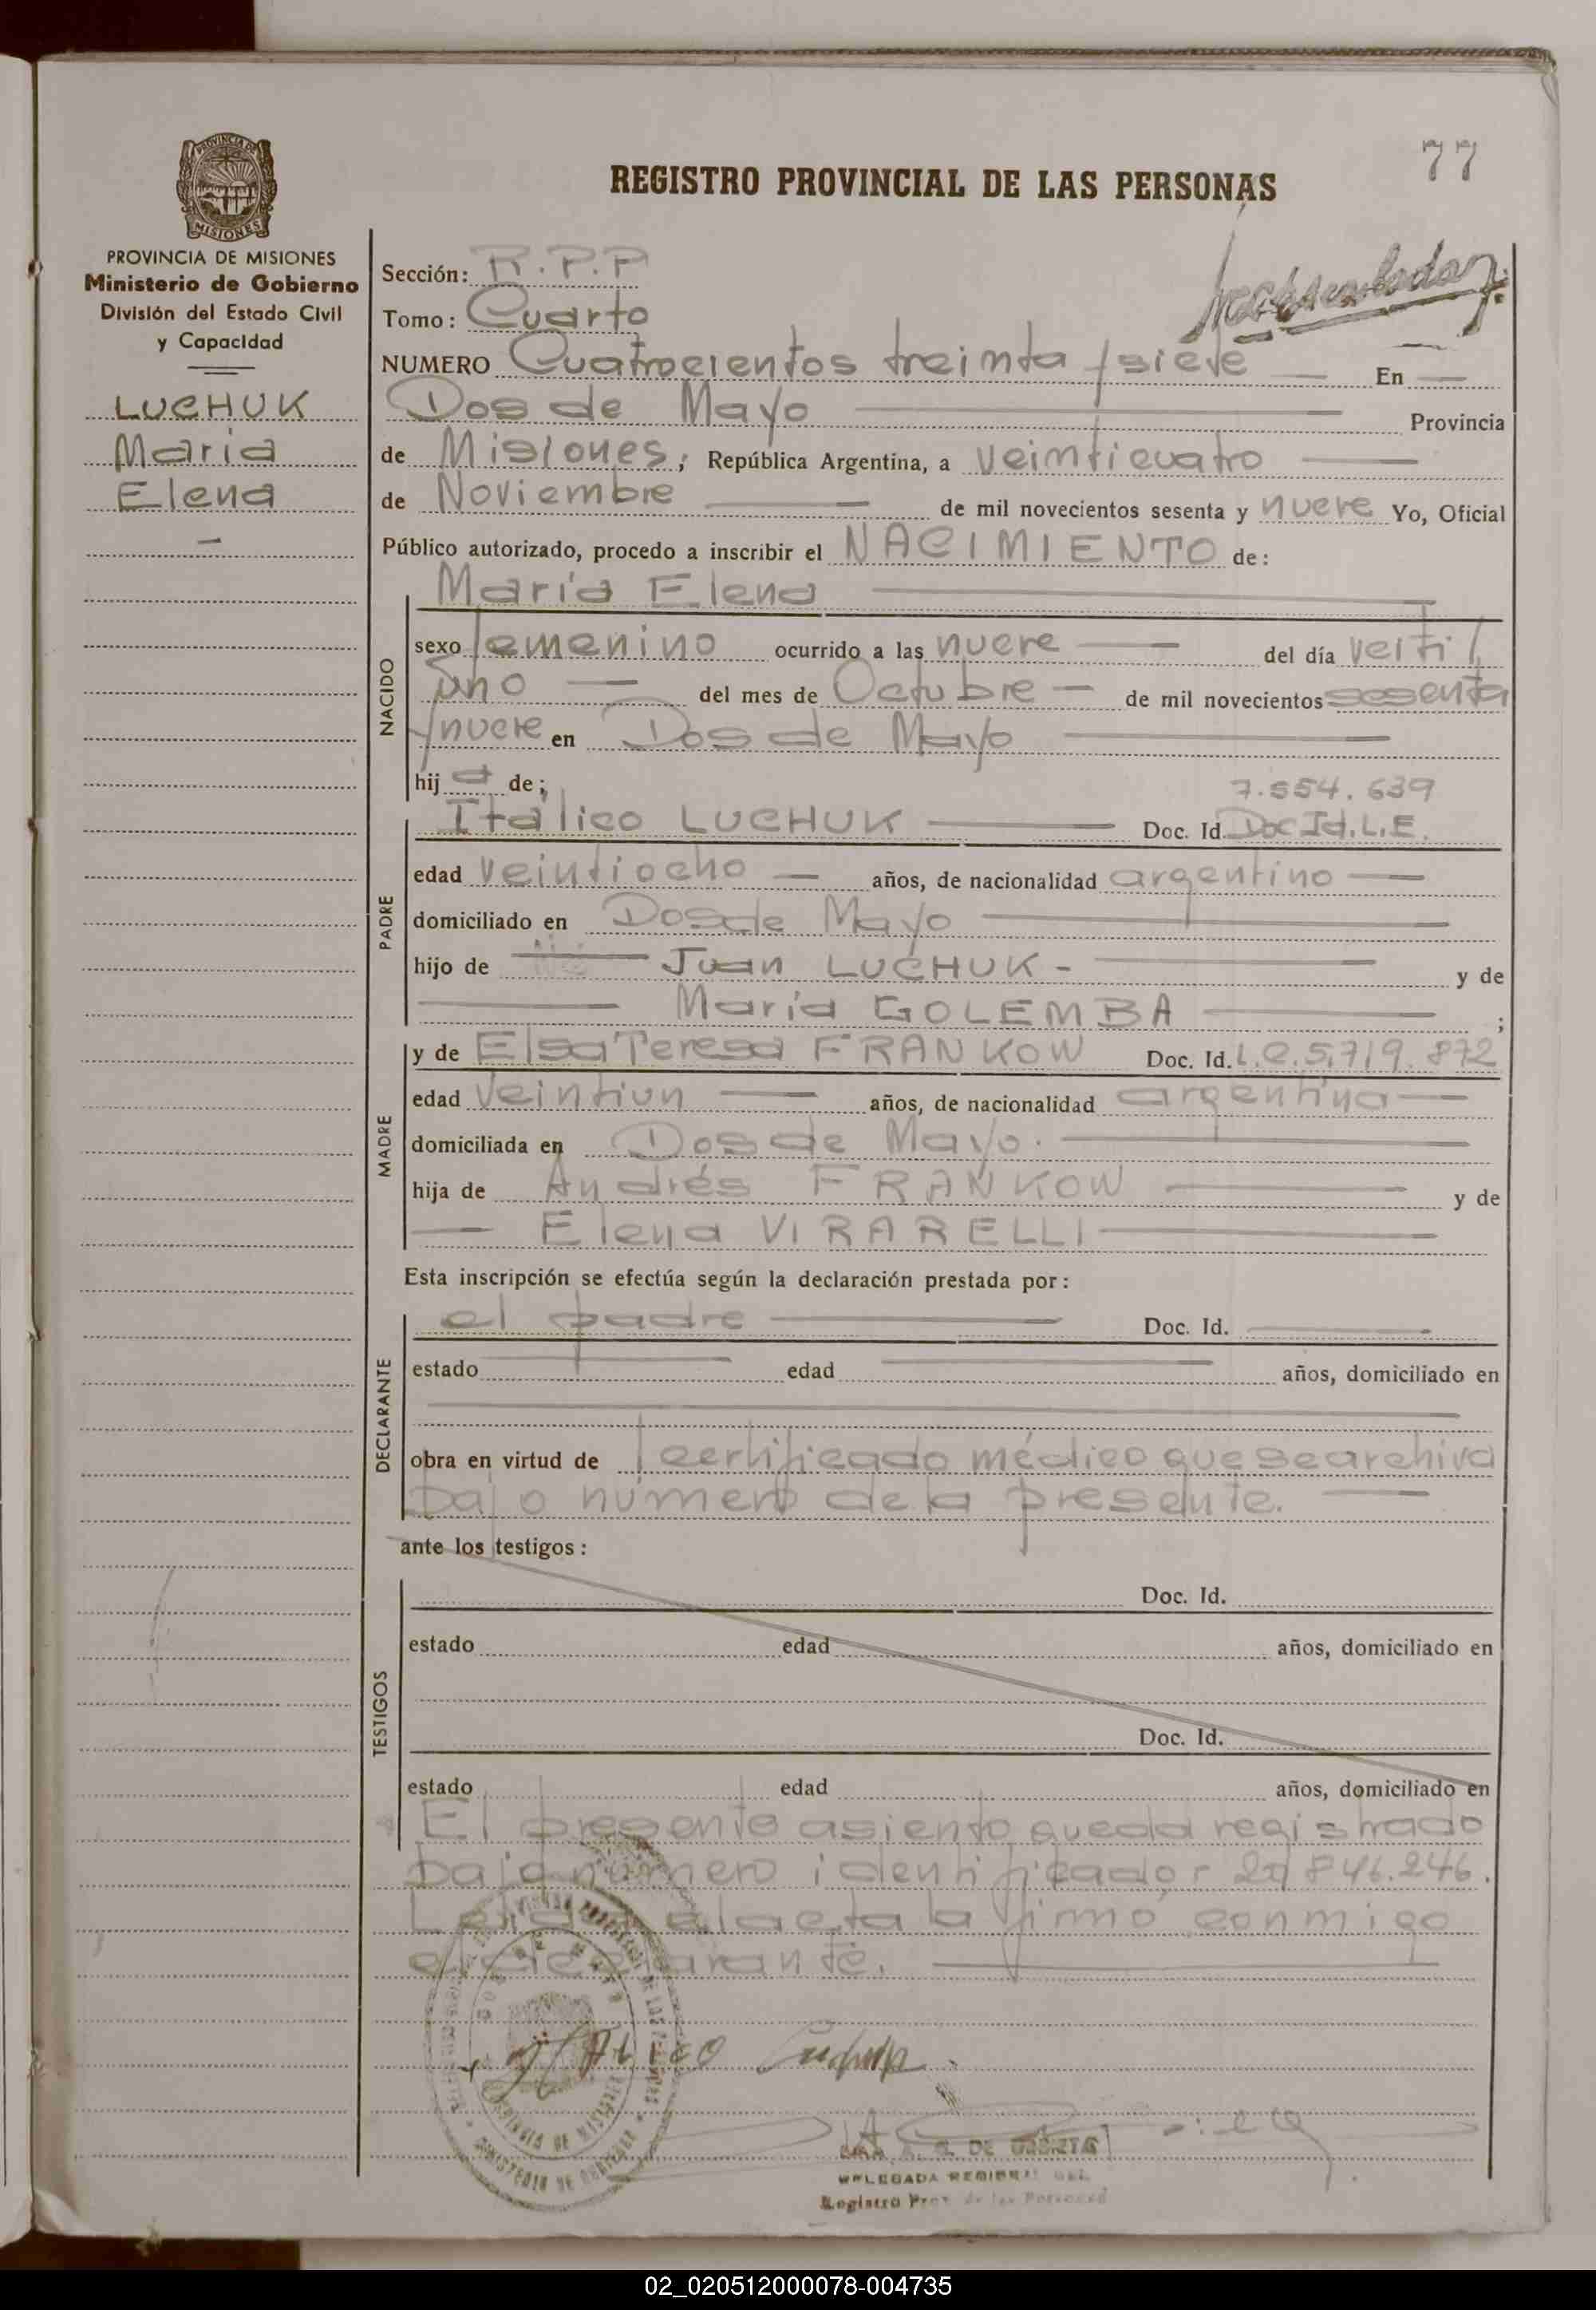 77
REGISTRO PROVINCIAL DE LAS PERSONAS
PROVINCIA DE
MISIONES
PROVINCIA DE MISIONES
Ministerio de Gobierno
División del Estado Civil
y Capacidad
LUCHUK
Maria
Elena
Sección: R.P.P
Tomo: Cuarto
NUMERO Cuatrocientos treinta y siete En
Dos de Mayo Provincia
de Misiones, República Argentina, a veinticuatro
de Noviembre de mil novecientos sesenta y nueve Yo, Oficial
Público autorizado, procedo a inscribir el NACIMIENTO de:
María Elena
NACIDO
sexo femenino ocurrido a las nueve del día veiti
uno del mes de Octubre de mil novecientos sesenta
y nueve en Dos de Mayo
hija de;
7.554.639
PADRE
Itálico LUCHUK Doc. Id. Doc Id. L.E.
edad veintiocho años, de nacionalidad argentino
domiciliado en Dos de Mayo
hijo de Juan LUCHUK - y de
María GOLEMBA ;
MADRE
y de Elsa Teresa FRANKOW Doc. Id. L.C. 5.719.872
edad veintiun años, de nacionalidad argentina
domiciliada en Dos de Mayo.
hija de Andrés FRANKOW y de
Elena VIRARELLI
Esta inscripción se efectúa según la declaración prestada por:
DECLARANTE
el padre Doc. Id.
estado edad años, domiciliado en
obra en virtud de certificado médico que se archiva
bajo número de la presente.
ante los testigos:
TESTIGOS
Doc. Id.
estado edad años, domiciliado en
Doc. Id.
estado edad años, domiciliado en
El presente asiento queda registrado
bajo número identificador 20.846.246.
Leída el acta la firmó conmigo
el declarante.
DELEGADA REGIONAL DEL
Registro Prov. de las Personas
02_020512000078-004735